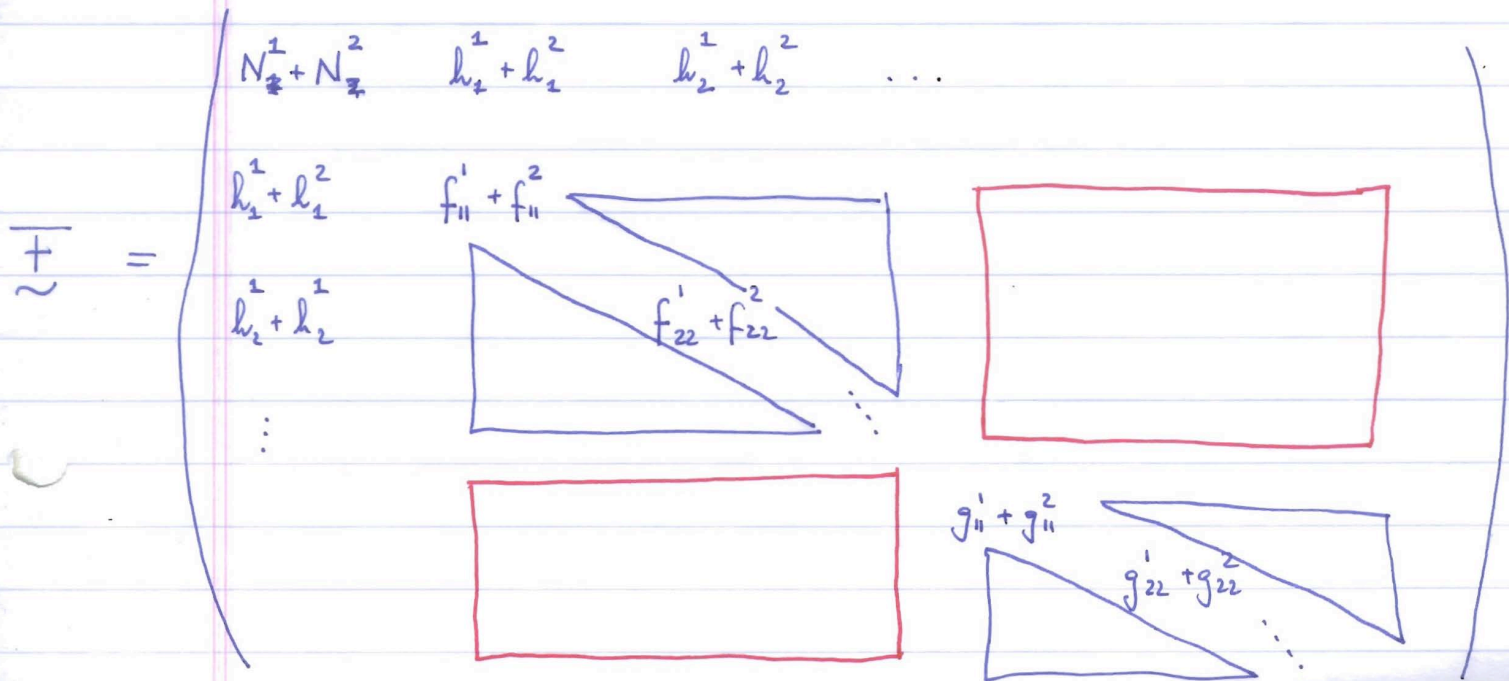 N₁¹ + N₂² h₁¹ + h₁² h₂¹ + h₂² ...
h₁¹ + h₁² f₁₁¹ + f₁₁²
T =
h₂¹ + h₂¹ f₂₂¹ + f₂₂²
g₁₁¹ + g₁₁²
g₂₂¹ + g₂₂²